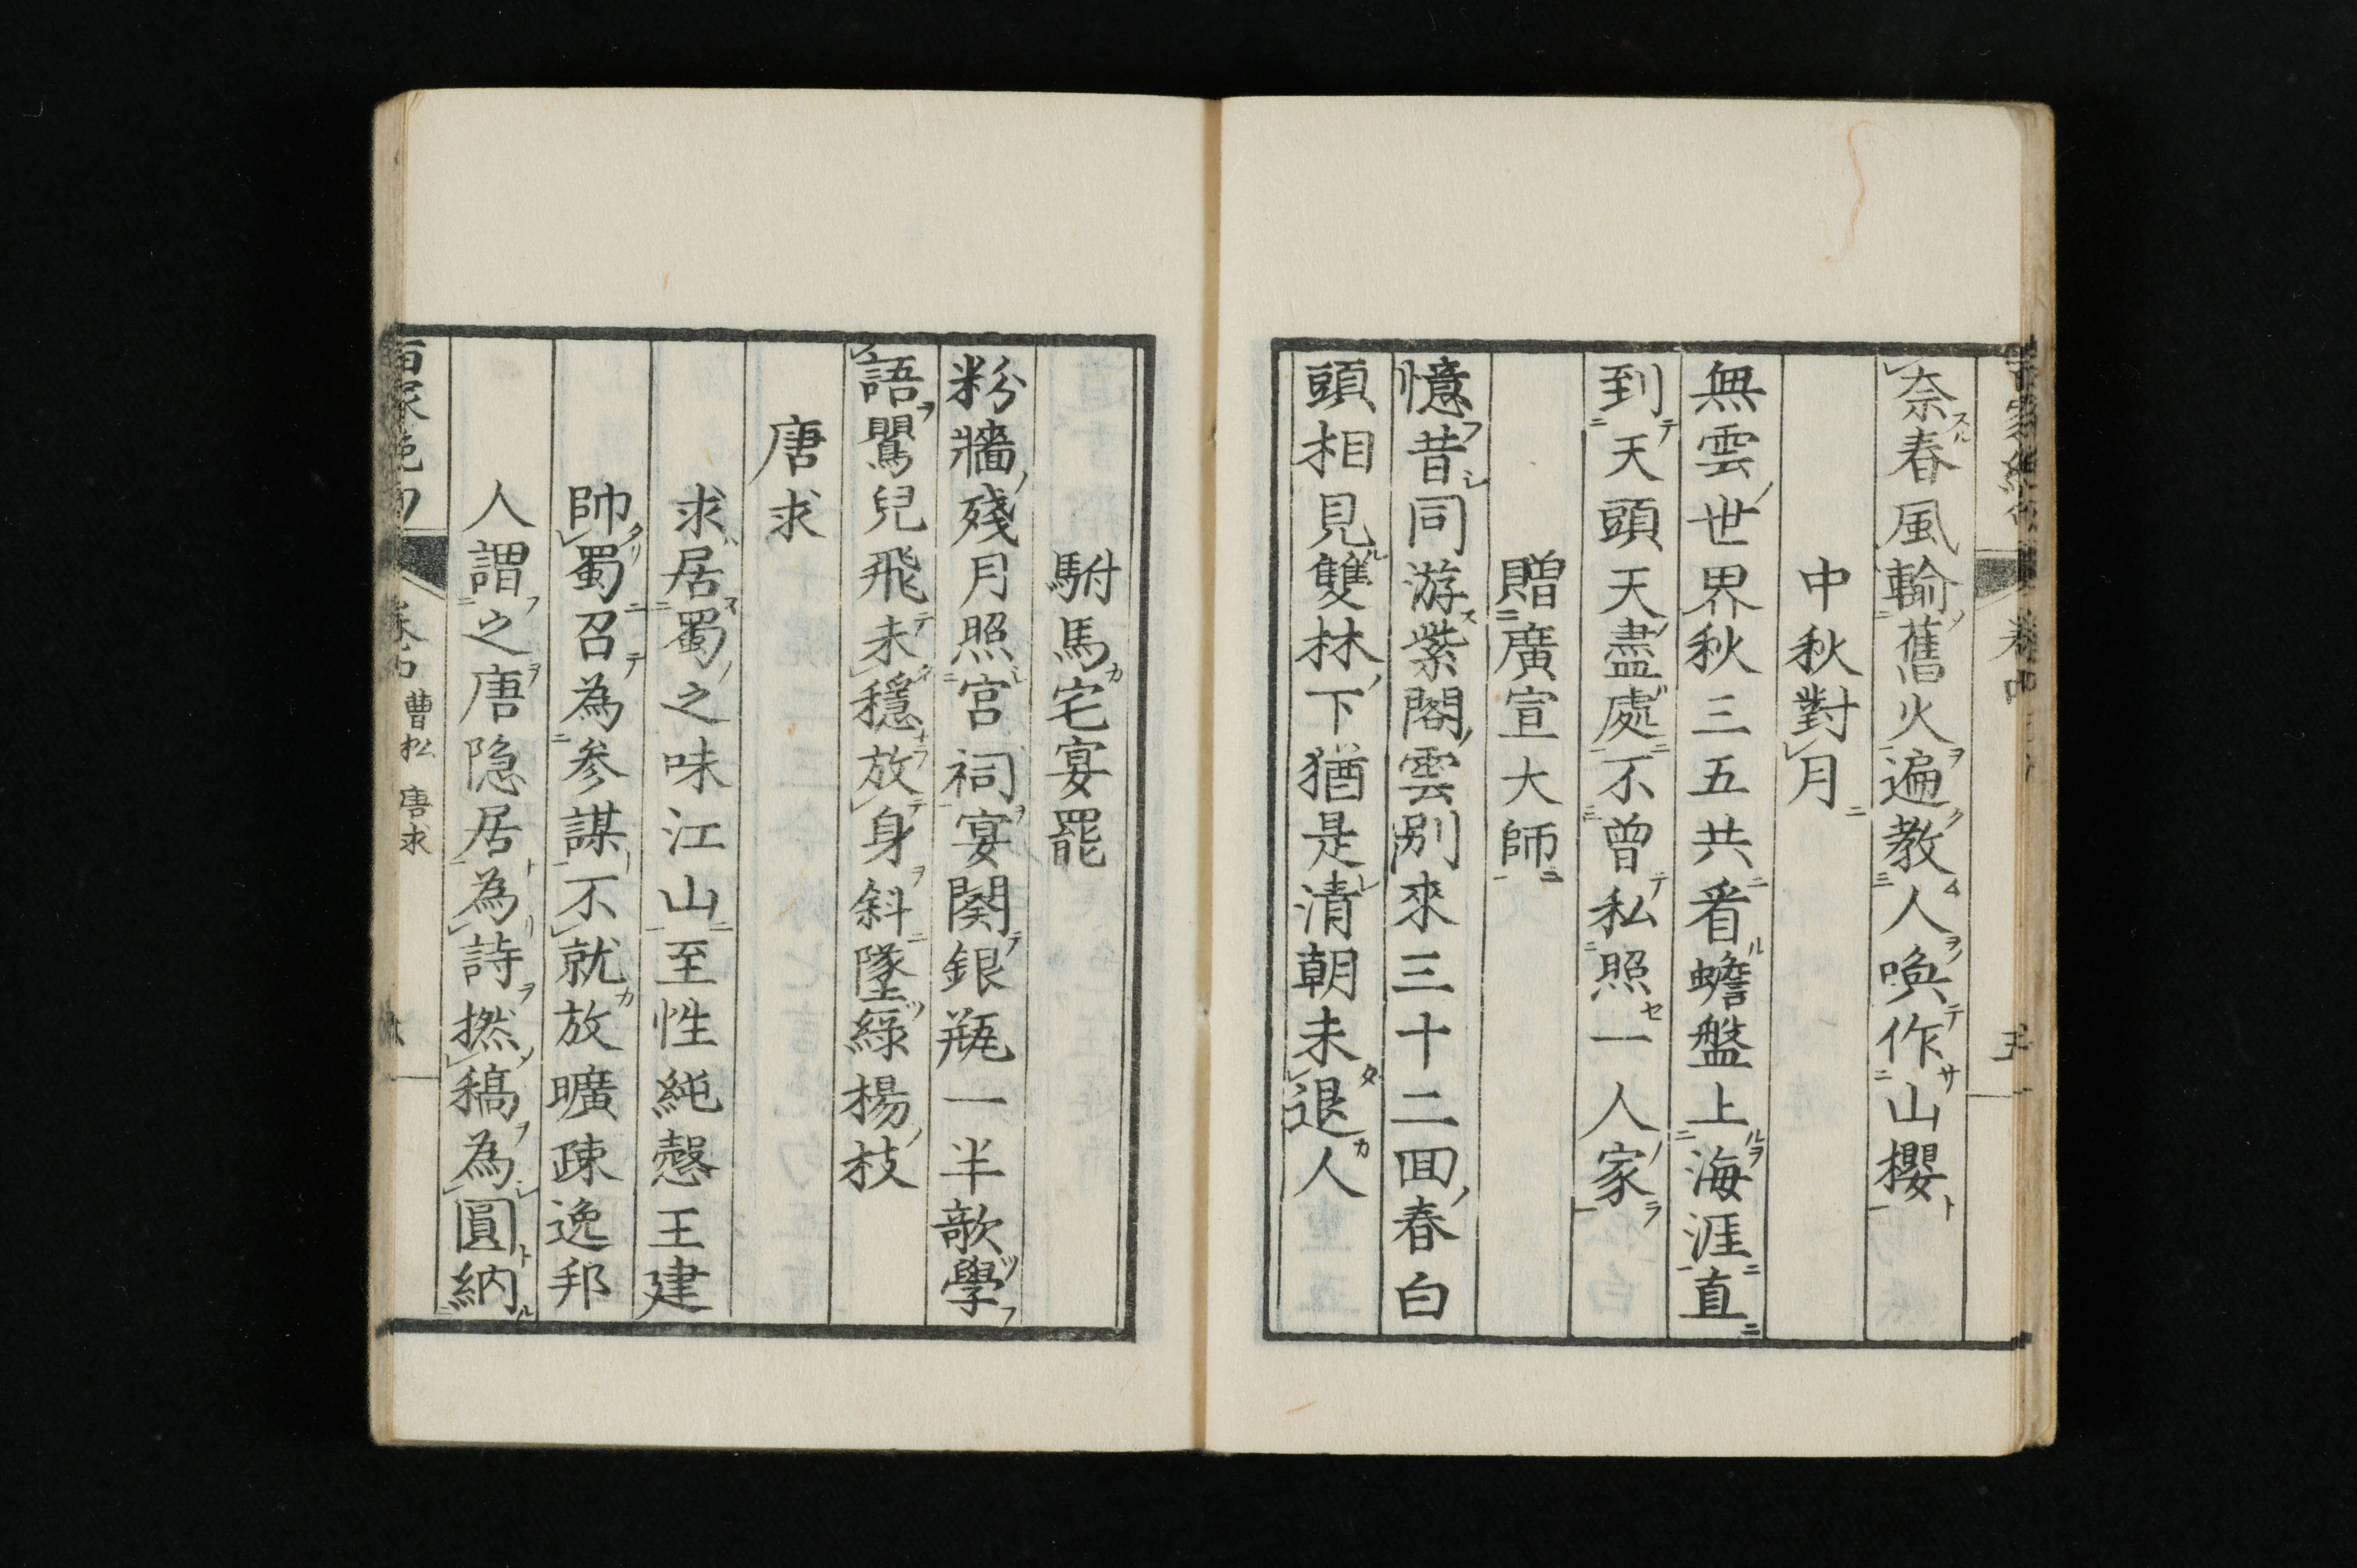 奈春風輸舊火遍教人喚作山櫻
中秋對月
無雲世界秋三五共看蟾盤上海涯直
到天頭天盡處不曾私照一人家
贈廣宣大師
憶昔同游紫閣雲别來三十二回春白
頭相見雙林下猶是清朝未退人
駙馬宅宴罷
粉牆殘月照宮祠宴闋銀瓶一半欹學
語鸎兒飛未穩放身斜墜綠楊枝
唐求
求居蜀之味江山至性純慤王建
帥蜀召為参謀不就放曠疎逸邦
人謂之唐隐居為詩撚稿為圓納
百家絶句 卷四 曹松 唐求